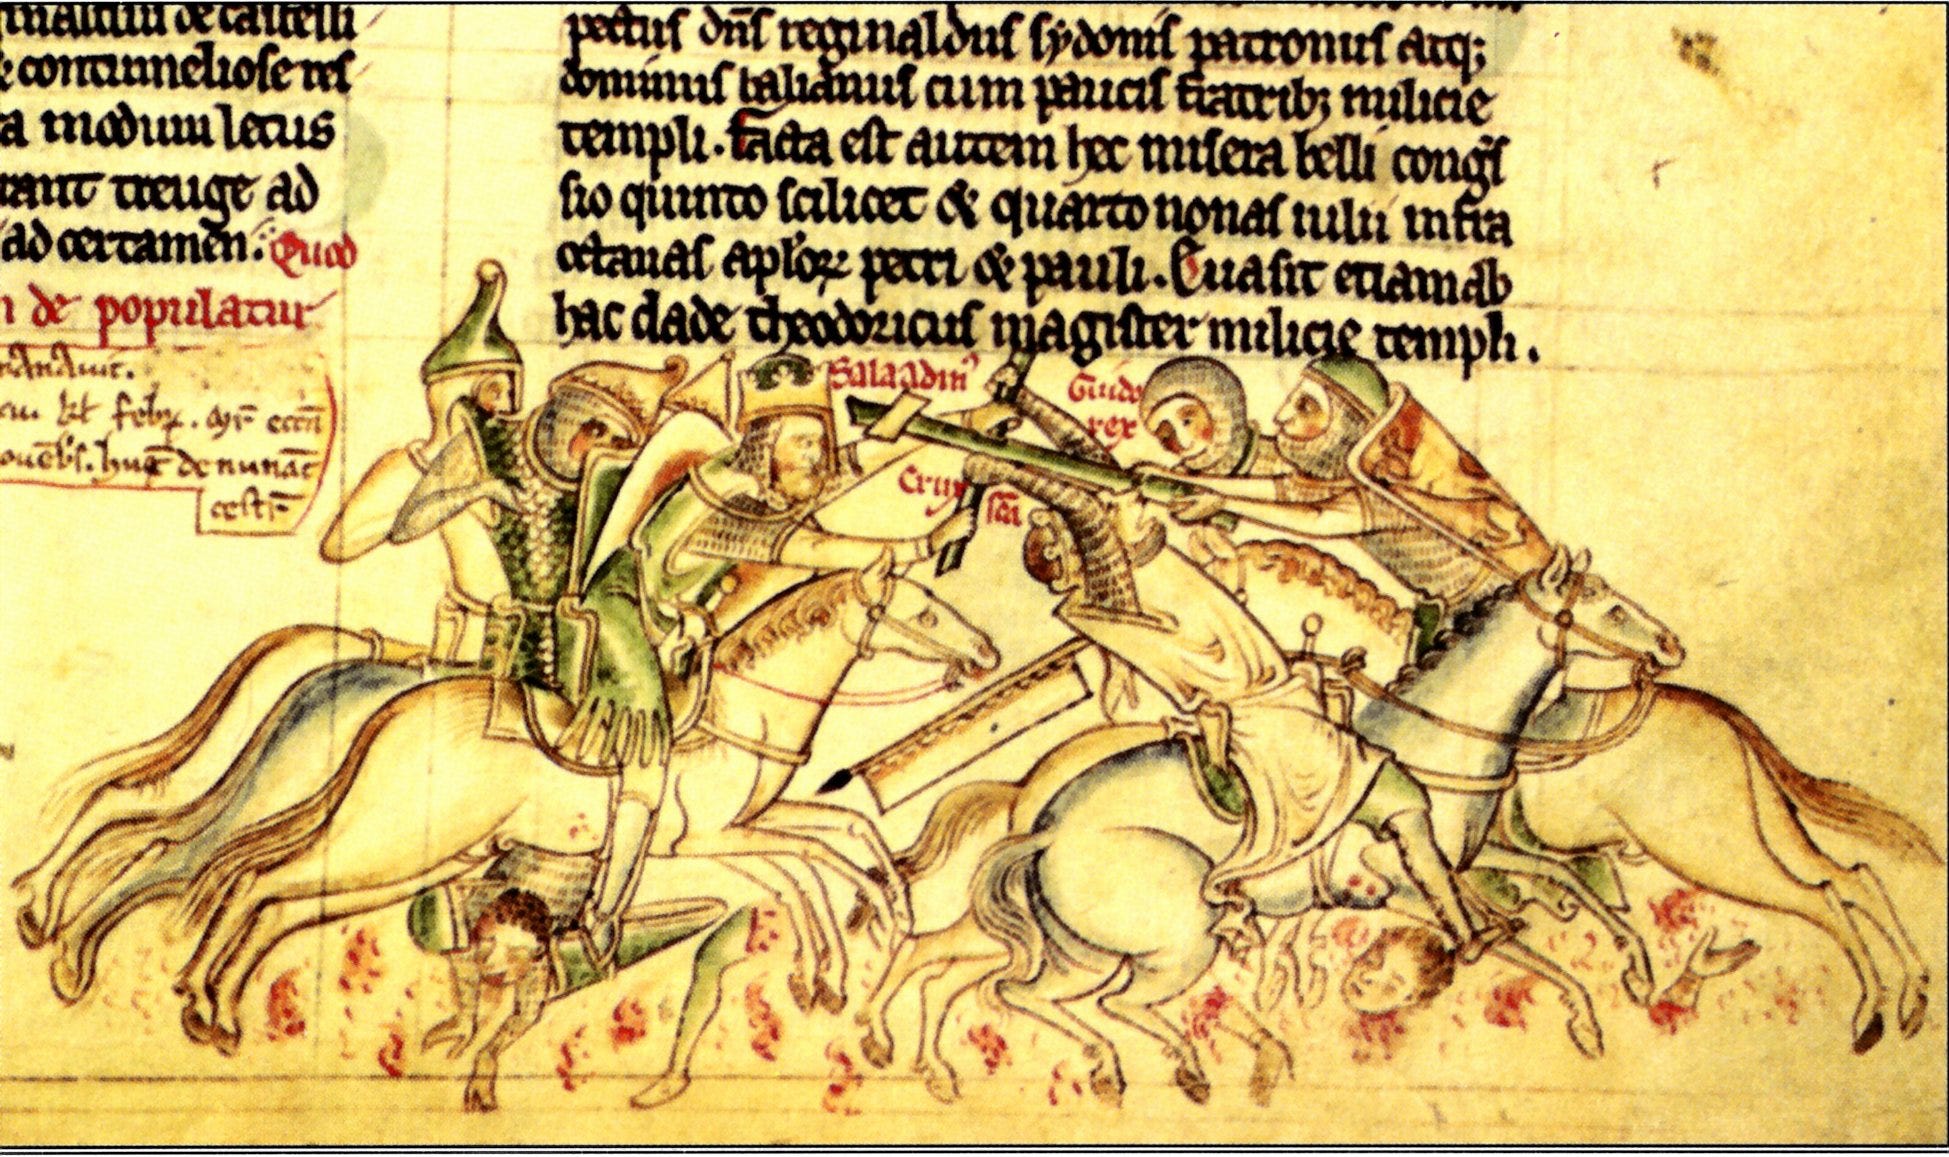 & contumeliose res
a modum letus
rant treuge ad
ad certamen. Quod
de populatur
mandavit.
kl febr.
huc de nunac
cestr
pectus dns reginaldus sydonis patronus atq;
dominus balianus cum paucis fratrib; milicie
templi. Facta est autem hec misera belli congs
sio quinto scilicet & quarto nonas iulii infra
octauas aplor petri & pauli. Euasit etiam ab
hac clade theodoricus magister milicie templi.
Saladin
Guido
rex
Crux sca